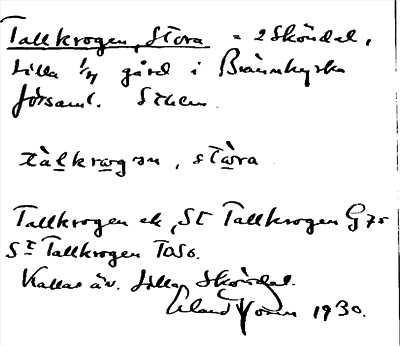 Tallkrogen, Stora = 2 Sköndal,
Lilla 1/4 gård i Brännkyrka
församl. Sthlm
tàlkrogən, stòra
Tallkrogen ek, St Tallkrogen G 70
St Tallkrogen TOSo.
Kallas äv. Lilla Sköndal.
Erland 1930.